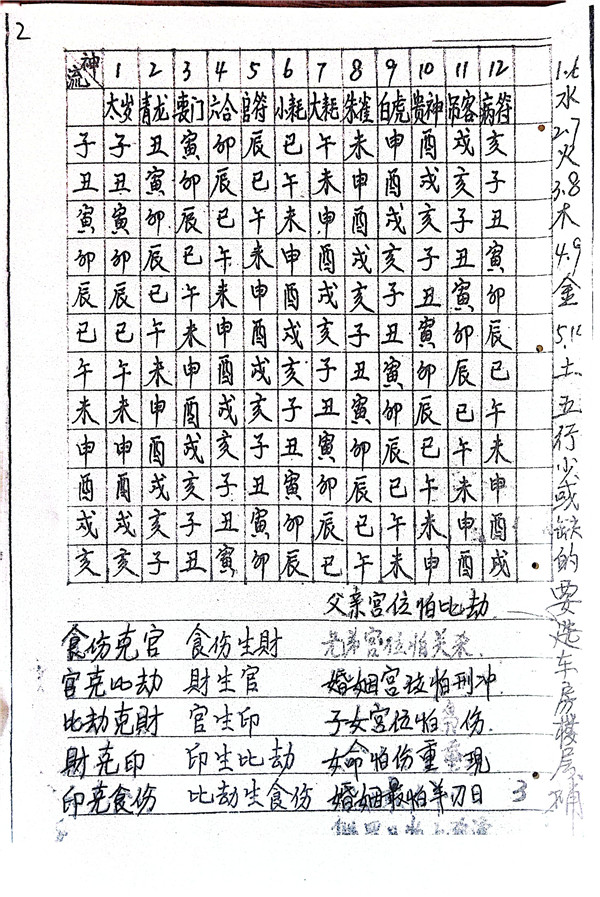 2
流 神 1 2 3 4 5 6 7 8 9 10 11 12
太岁 青龙 喪门 六合 官符 小耗 大耗 朱雀 白虎 贵神 吊客 病符
子 子 丑 寅 卯 辰 巳 午 未 申 酉 戌 亥
丑 丑 寅 卯 辰 巳 午 未 申 酉 戌 亥 子
寅 寅 卯 辰 巳 午 未 申 酉 戌 亥 子 丑
卯 卯 辰 巳 午 未 申 酉 戌 亥 子 丑 寅
辰 辰 巳 午 未 申 酉 戌 亥 子 丑 寅 卯
巳 巳 午 未 申 酉 戌 亥 子 丑 寅 卯 辰
午 午 未 申 酉 戌 亥 子 丑 寅 卯 辰 巳
未 未 申 酉 戌 亥 子 丑 寅 卯 辰 巳 午
申 申 酉 戌 亥 子 丑 寅 卯 辰 巳 午 未
酉 酉 戌 亥 子 丑 寅 卯 辰 巳 午 未 申
戌 戌 亥 子 丑 寅 卯 辰 巳 午 未 申 酉
亥 亥 子 丑 寅 卯 辰 巳 午 未 申 酉 戌
父亲宫位怕比劫
食伤克官 食伤生財 兄弟宫位怕关杀
官克比劫 財生官 婚姻宫位怕刑冲
比劫克財 官生印 子女宫位怕枭伤
財克印 印生比劫 女命怕伤重重现
印克食伤 比劫生食伤 婚姻最怕羊刃日 3
1.6水 2.7火 3.8木 4.9金 5.10土 五行少或缺的要选车房楼层补